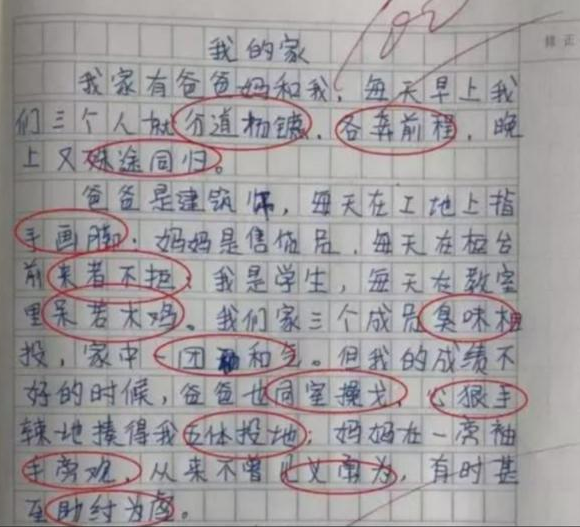 我的家
我家有爸爸妈和我,每天早上我
们三个人就分道杨镳,各奔前程,晚
上又殊途同归。
爸爸是建筑师,每天在工地上指
手画脚;妈妈是售货员,每天在柜台
前来者不拒;我是学生,每天在教室
里呆若木鸡。我们家三个成员臭味相
投,家中一团和气。但我的成绩不
好的时候,爸爸也同室操戈,心狠手
辣地揍得我五体投地;妈妈在一旁袖
手旁观,从来不曾见义勇为,有时甚
至助纣为虐。
修正